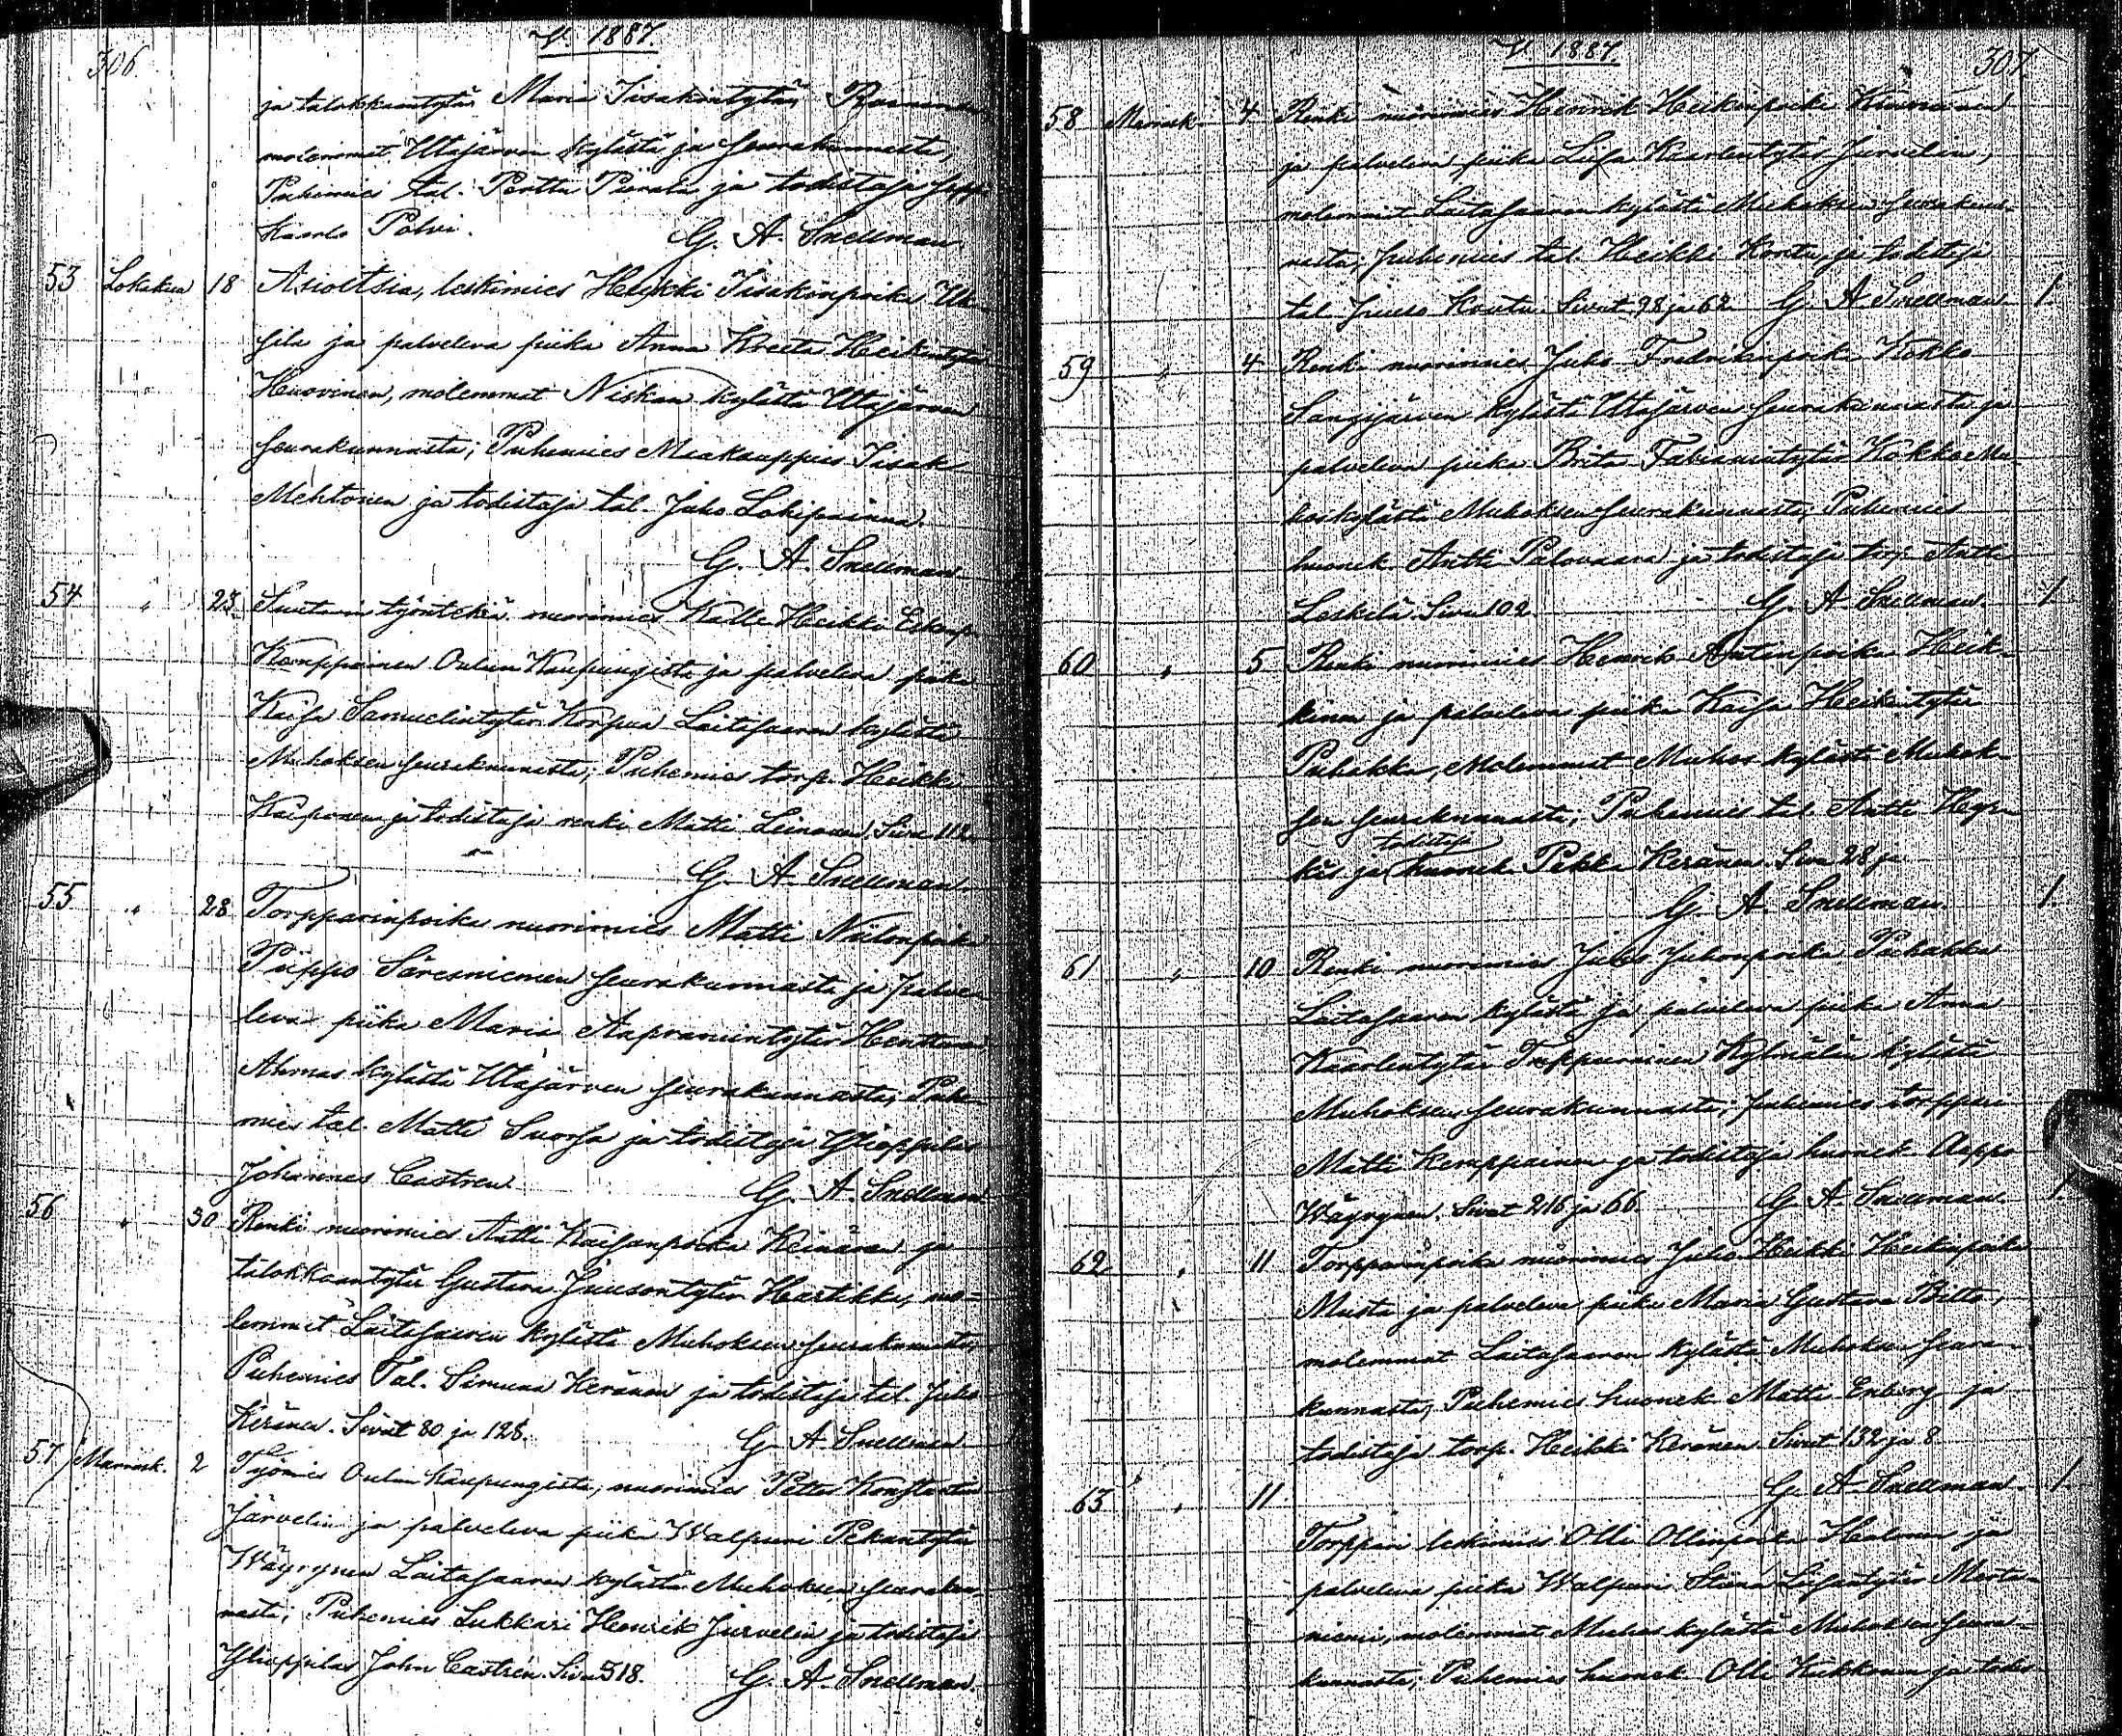 306
V. 1887.
ja talokkaantytär Maria Iisakintytär
molemmat Utajärven kylästä ja seurakunnasta,
Puhemies tal. Pertti Pierola ja todistaja sepp.
Kaarlo Polvi. G. A. Snellman
53 Lokakuu 18 Asioitsia, leskimies Heikki Iisakinpoika
sila ja palveleva piika Anna Kreeta Heikintytär
Huovinen, molemmat Niskan kylästä Utajärven
seurakunnasta; Puhemies Maakauppias Iisak
Mehtonen ja todistaja tal. Juho Lohipainna.
G. A. Snellman.
54 " 23 Suutarin työntekiä nuorimies Kalle Heikki
Kamppainen Oulun Kaupungista ja palveleva piika
Kaisa Samuelintytär Korpua Laitasaaren kylästä
Muhoksen seurakunnasta; Puhemies torp. Heikki
Kaiponen ja todistaja renki Matti Leinonen, Sivu 112
G. A. Snellman.
55 " 28 Torpparinpoika nuorimies Matti Niilonpoika
Piippo Säresniemen seurakunnasta ja palve-
leva piika Maria Aapramintytär Henttunen
Ahmas kylästä Utajärven seurakunnasta, Puhe-
mies tal. Matti Suorsa ja todistaja Ylioppilas
Johannes Castren G. A. Snellman
56 " 30 Renki nuorimies Antti Kaisanpoika Keinänen ja
talokkaantytär Gustava Juusontytär Hartikka, mo-
lemmat Laitasaaren kylästä Muhoksen seurakunnasta,
Puhemies Tal. Simuna Keränen ja todistaja tal. Juho
Keränen. Sivut 80 ja 128. G. A. Snellman
57 Marrask. 2 Työmies Oulun kaupungista, nuorimies Petter Konstantin
Järvelin ja palveleva piika Walpuri Pekantytär
Wäyrynen Laitasaaren kylästä Muhoksen seurakun-
nasta; Puhemies Lukkari Henrik Jurvelin ja todistaja
Ylioppilas John Castrén. Sivu 318. G. A. Snellman.
V. 1887. 307.
58 Marrask. 4 Renki nuorimies Henrik Heikinpoika
ja palveleva piika Liisa Kaarlentytär Jurvelin,
molemmat Laitasaaren kylästä Muhoksen seurakun-
nasta; puhemies tal. Heikki Kontu, ja todistaja
tal. Juuso Koutu. Sivut 98 ja 62. G. A. Snellman. 1.
59 " 4 Renki nuorimies Juho Fredrikinpoika Kokko
Sangijärven kylästä Utajärven seurakunnasta ja
palveleva piika Brita Fabianintytär Kokko Mu-
hoskylästä Muhoksen seurakunnasta; Puhemies
huonek. Antti Palovaara ja todistaja torp. Antti
Leskelä. Sivu 102. G. A. Snellman. 1
60 " 5 Renki nuorimies Henrik Antinpoika Heik-
kinen ja palveleva piika Kaisa Heikintytär
Puhakka, Molemmat Muhos kylästä Muhok-
sen seurakunnasta; Puhemies tal. Antti Hyr-
käs ja todistaja huonek. Pekka Keränen. Sivu 28 ja
G. A. Snellman. 1
61 " 10 Renki nuorimies Juho Juhonpoika Puhakka
Laitasaaren kylästä ja palveleva piika Anna
Kaarlentytär Tuppurainen Kylmälän kylästä
Muhoksen seurakunnasta; puhemies torppari
Matti Kemppainen ja todistaja huonek. Aappo
Wäyrynen. Sivut 216 ja 66. G. A. Snellman. 1.
62 " 11 Torpparinpoika nuorimies Juho Heikki Heikinpoika
Musta ja palveleva piika Maria Gustava Bitts,
molemmat Laitasaaren kylästä Muhoksen seura-
kunnasta; Puhemies huonek. Matti Enberg ja
todistaja torp. Heikki Keränen. Sivut 132 ja 8.
G. A. Snellman. 1.
63 " 11
Torppari leskimies Olli Ollinpoika Halonen ja
palveleva piika Walpuri Stiina Liisantytär Merta-
niemi, molemmat Muhos kylästä Muhoksen seura-
kunnasta; Puhemies huonek. Olli Kukkonen ja todis-